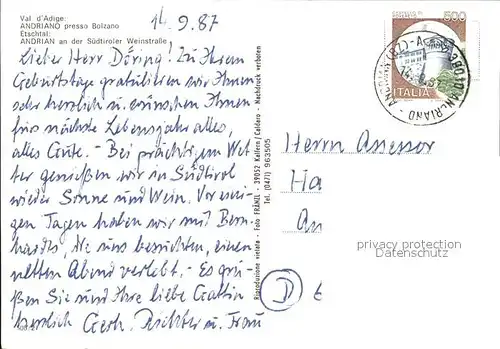 Val d'Adige:
ANDRIANO presso Bolzano
Etschtal:
ANDRIAN an der Südtiroler Weinstraße
14.9.87
Lieber Herr Döring! Zu Ihrem
Geburtstage gratulieren wir Ihnen
sehr herzlich u. wünschen Ihnen
fürs nächste Lebensjahr alles,
alles Gute. - Bei prächtigem Wet-
ter genießen wir in Südtirol
wieder Sonne und Wein. Vor eini-
gen Tagen haben wir mit Bern-
hardts, die uns besuchten, einen
netten Abend verlebt. - Es grü-
ßen Sie und Ihre liebe Gattin
herzlich Gerh. Richter u. Frau
Riproduzione vietata - Foto FRÄNZL - 39052 Kaltern / Caldaro - Nachdruck verboten
Tel. (0471) 963505
500
ITALIA
Herrn Assessor
Ha
An
D
privacy protection
Datenschutz